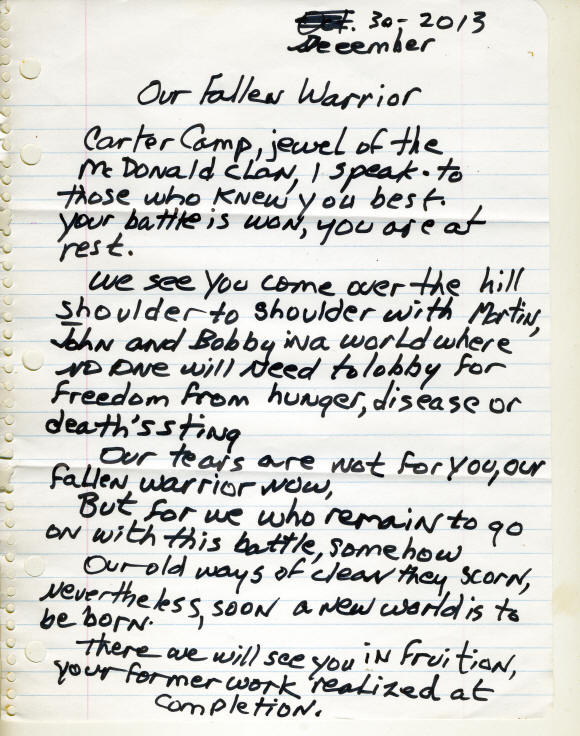 Oct. 30-2013
December
Our Fallen Warrior
Carter Camp, jewel of the
McDonald clan, I speak to
those who knew you best.
your battle is won, you are at
rest.
We see you come over the hill
shoulder to shoulder with Martin,
John and Bobby in a world where
no one will need to lobby for
freedom from hunger, disease or
death's sting
Our tears are not for you, our
fallen warrior now,
But for we who remain to go
on with this battle, somehow
Our old ways of clean they scorn,
Nevertheless, soon a new world is to
be born.
There we will see you in fruition,
your former work realized at
completion.